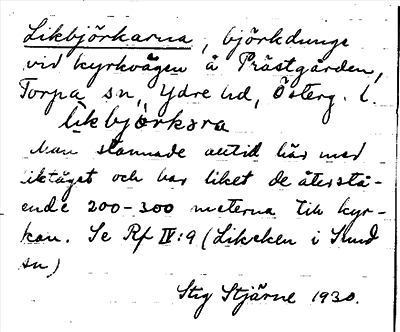 Likbjörkarna, björkdunge
vid kyrkvägen å Prästgården,
Torpa sn, Ydre hd, Österg. l.
likbjörkara
Man stannade alltid här med
liktåget och bar liket de återstå-
ende 200-300 meterna till kyr-
kan. Se Rf IV:9 (Likeken i Sund
sn)
Stig Stjärne 1930.